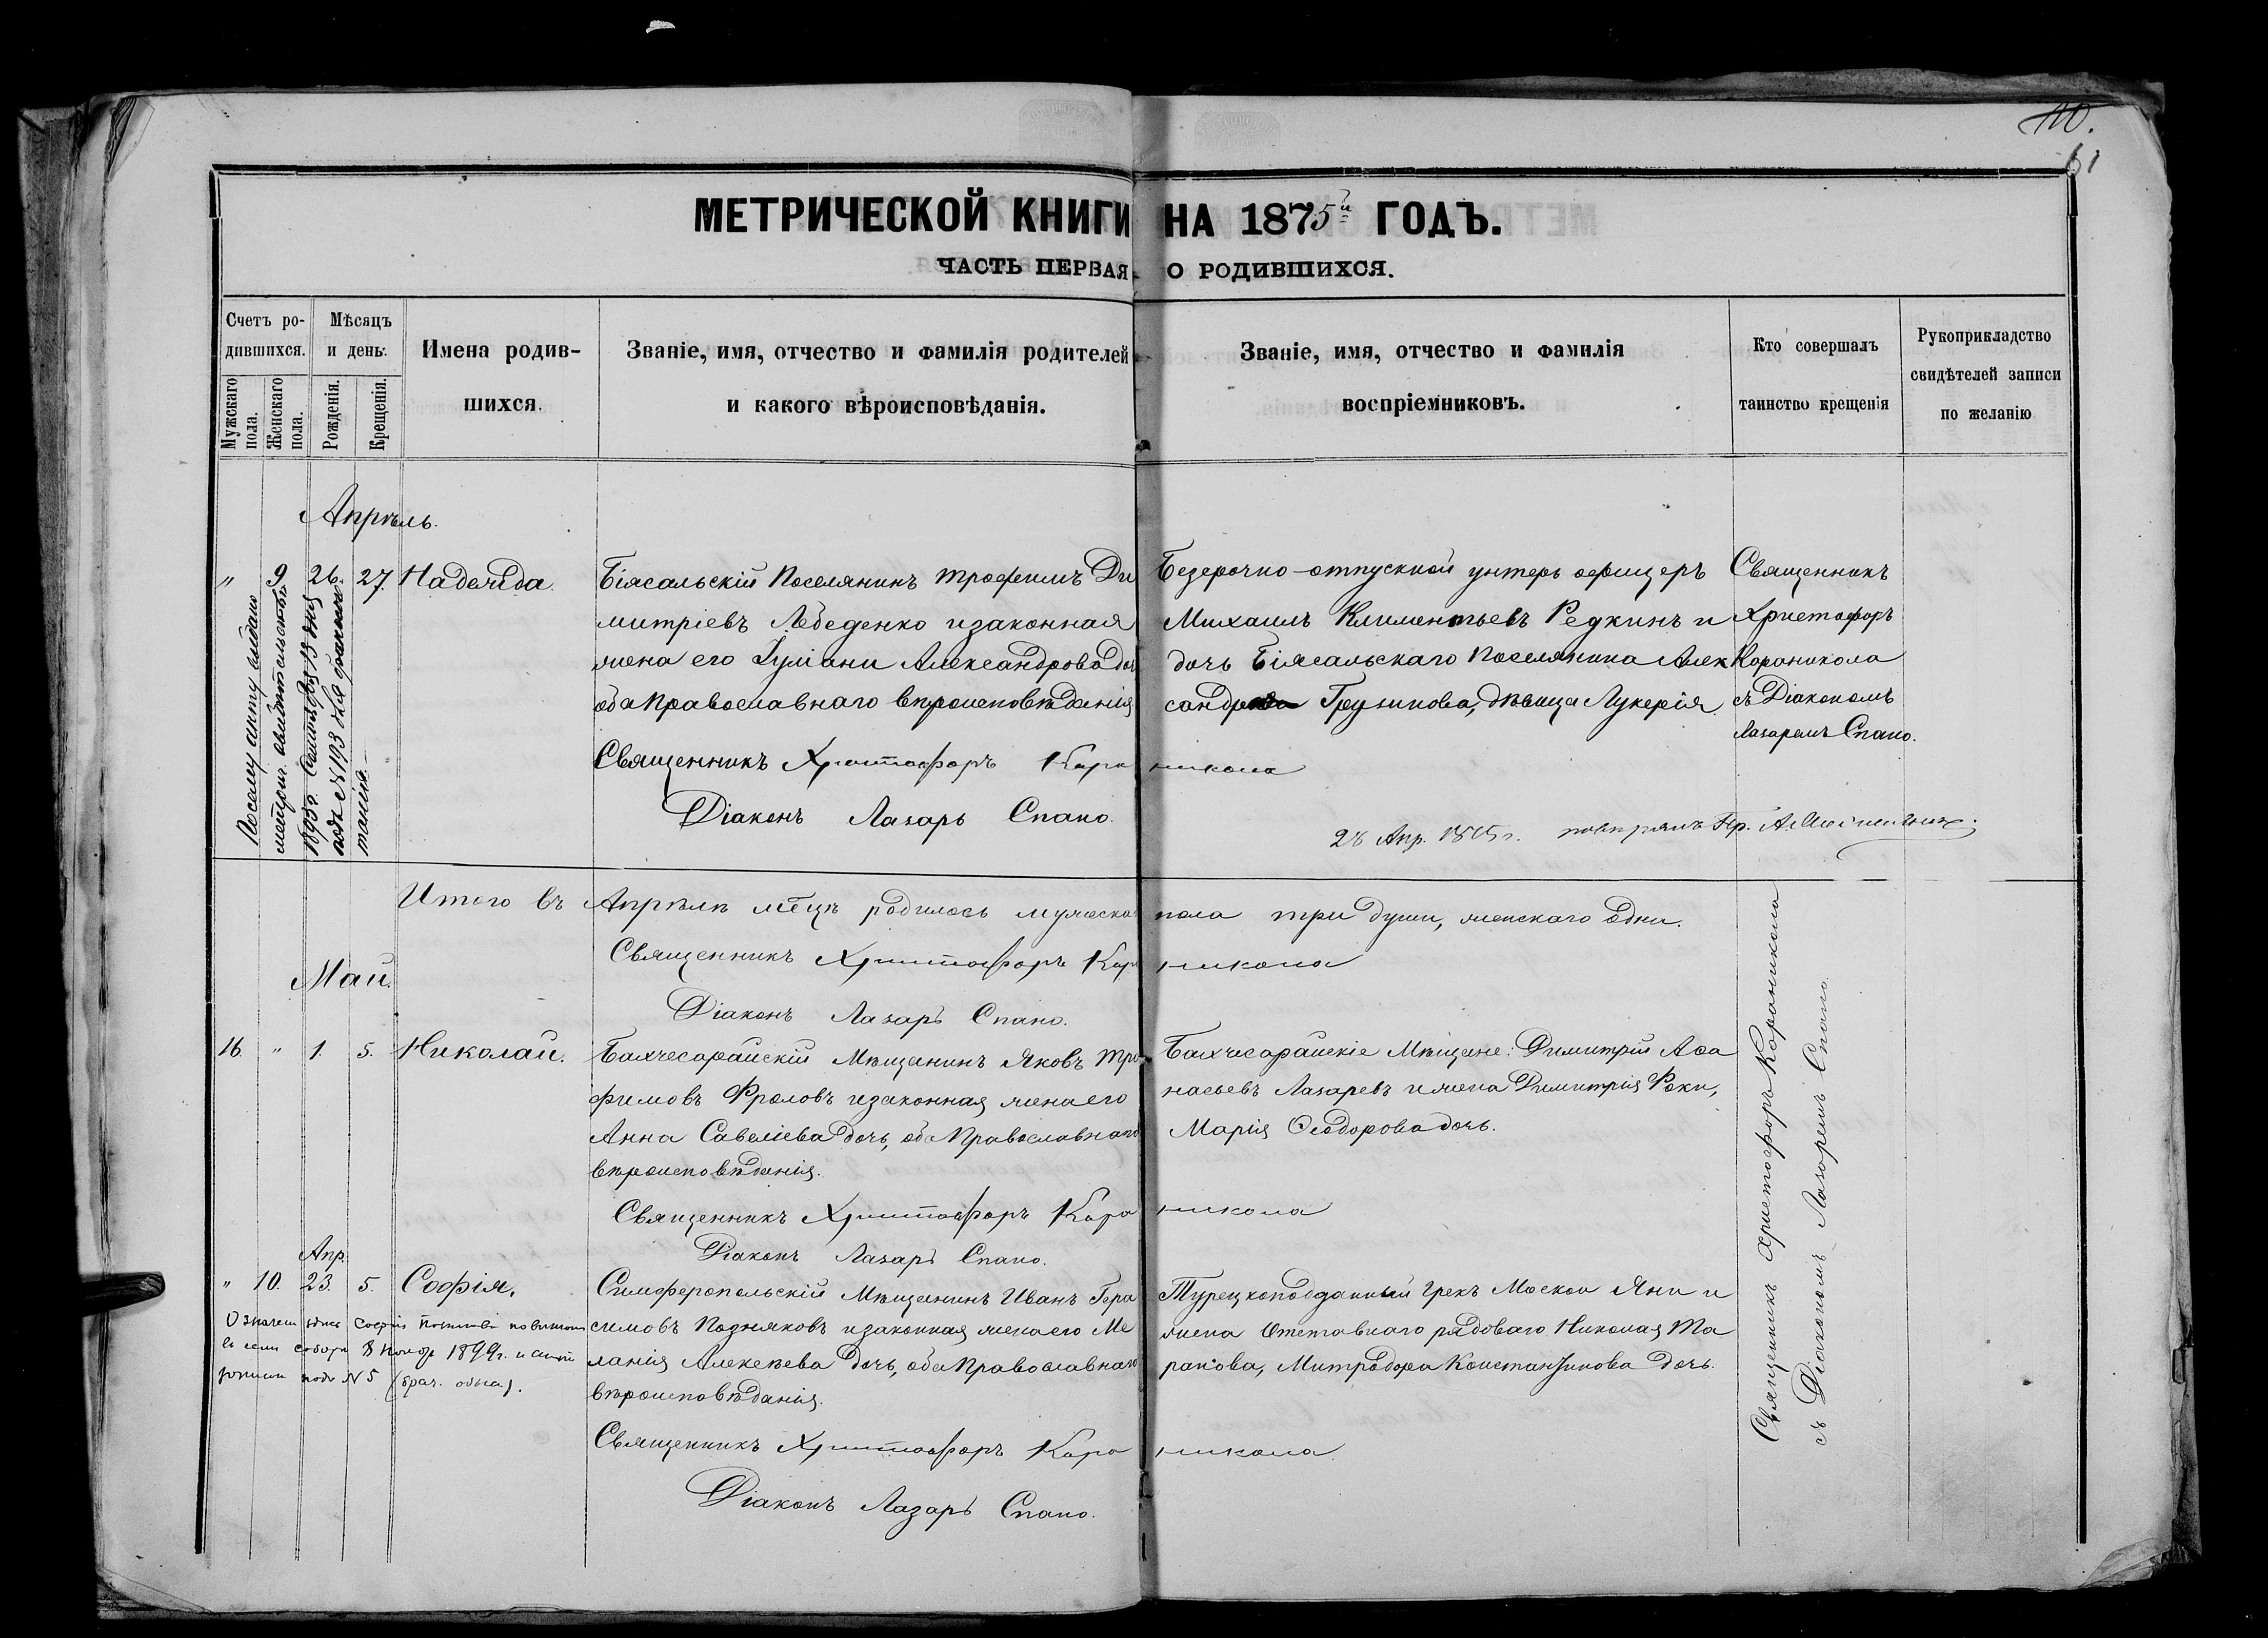 110.
61
МЕТРИЧЕСКОЙ КНИГИ НА 1875й ГОДЪ.
ЧАСТЬ ПЕРВАЯ. О РОДИВШИХСЯ.
Счетъ ро-
дившихся.
Мужскаго пола.
Женскаго пола.
Мѣсяцъ
и день.
Рожденія.
Крещенія.
Имена родив-
шихся.
Званіе, имя, отчество и фамилія родителей
и какого вѣроисповѣданія.
Званіе, имя, отчество и фамилія
воспріемниковъ.
Кто совершалъ
таинство крещенія
Рукоприкладство
свидѣтелей записи
по желанію
Апрѣль.
" 9 26. 27. Надежда.
По сему акту выдано
метрич. свидѣтельство
1895г. Сентября 13 дня
подъ № 193 для
Біясальскій Поселянинъ Трофимъ Ди
митріевъ Лебеденко и законная
жена его Іуліани Александрова доч
оба Православнаго вѣроисповѣданія
Священникъ Христофоръ Кара никола
Діаконъ Лазарь Спано.
Безсрочно-отпускной унтеръ офицеръ
Михаилъ Климентьевъ Редкинъ и
дочь Біясальскаго Поселянина Алек
сандра Грузинова, дѣвица Лукерія.
Священникъ
Христофоръ
Кораникола
съ Діакономъ
Лазаремъ Спано.
28 Апр. 1875 г. повѣрялъ
Итого въ Апрѣлѣ м̃цѣ родилось мужеска пола три души, женскаго одна.
Священникъ Христофоръ Кара никола
Діаконъ Лазарь Спано.
Май.
16. " 1. 5. Николай.
Бахчесарайскій Мѣщанинъ Яковъ Тро
фимовъ Фроловъ и законная жена его
Анна Савеліева дочь, оба Православнаго
вѣроисповѣданія.
Священникъ Христофоръ Кара никола
Діаконъ Лазарь Спано.
Бахчисарайскіе Мѣщане: Димитрій Аѳа
насьевъ Лазаревъ и жена Димитрія Роки,
Марія Ѳеодорова дочь.
Священникъ Христофоръ Кораникола
съ Діакономъ Лазаремъ Спано.
Апр.
" 10. 23. 5. Софія.
Означен здѣсь Софія повѣнчана
въ сем соборѣ 8 Ноябр 1899г.
подъ № 5 (брач. обыск).
Симферопольскій Мѣщанинъ Иванъ Гера
симовъ Поздняковъ и законная жена его Ме
ланія Алексѣева дочь, оба Православнаго
вѣроисповѣданія.
Священникъ Христофоръ Кара никола.
Діаконъ Лазарь Спано.
Турецкоподданный Грекъ Москои Яни и
жена Отставнаго рядоваго Николая Та
ранова, Митродора Константинова дочь.